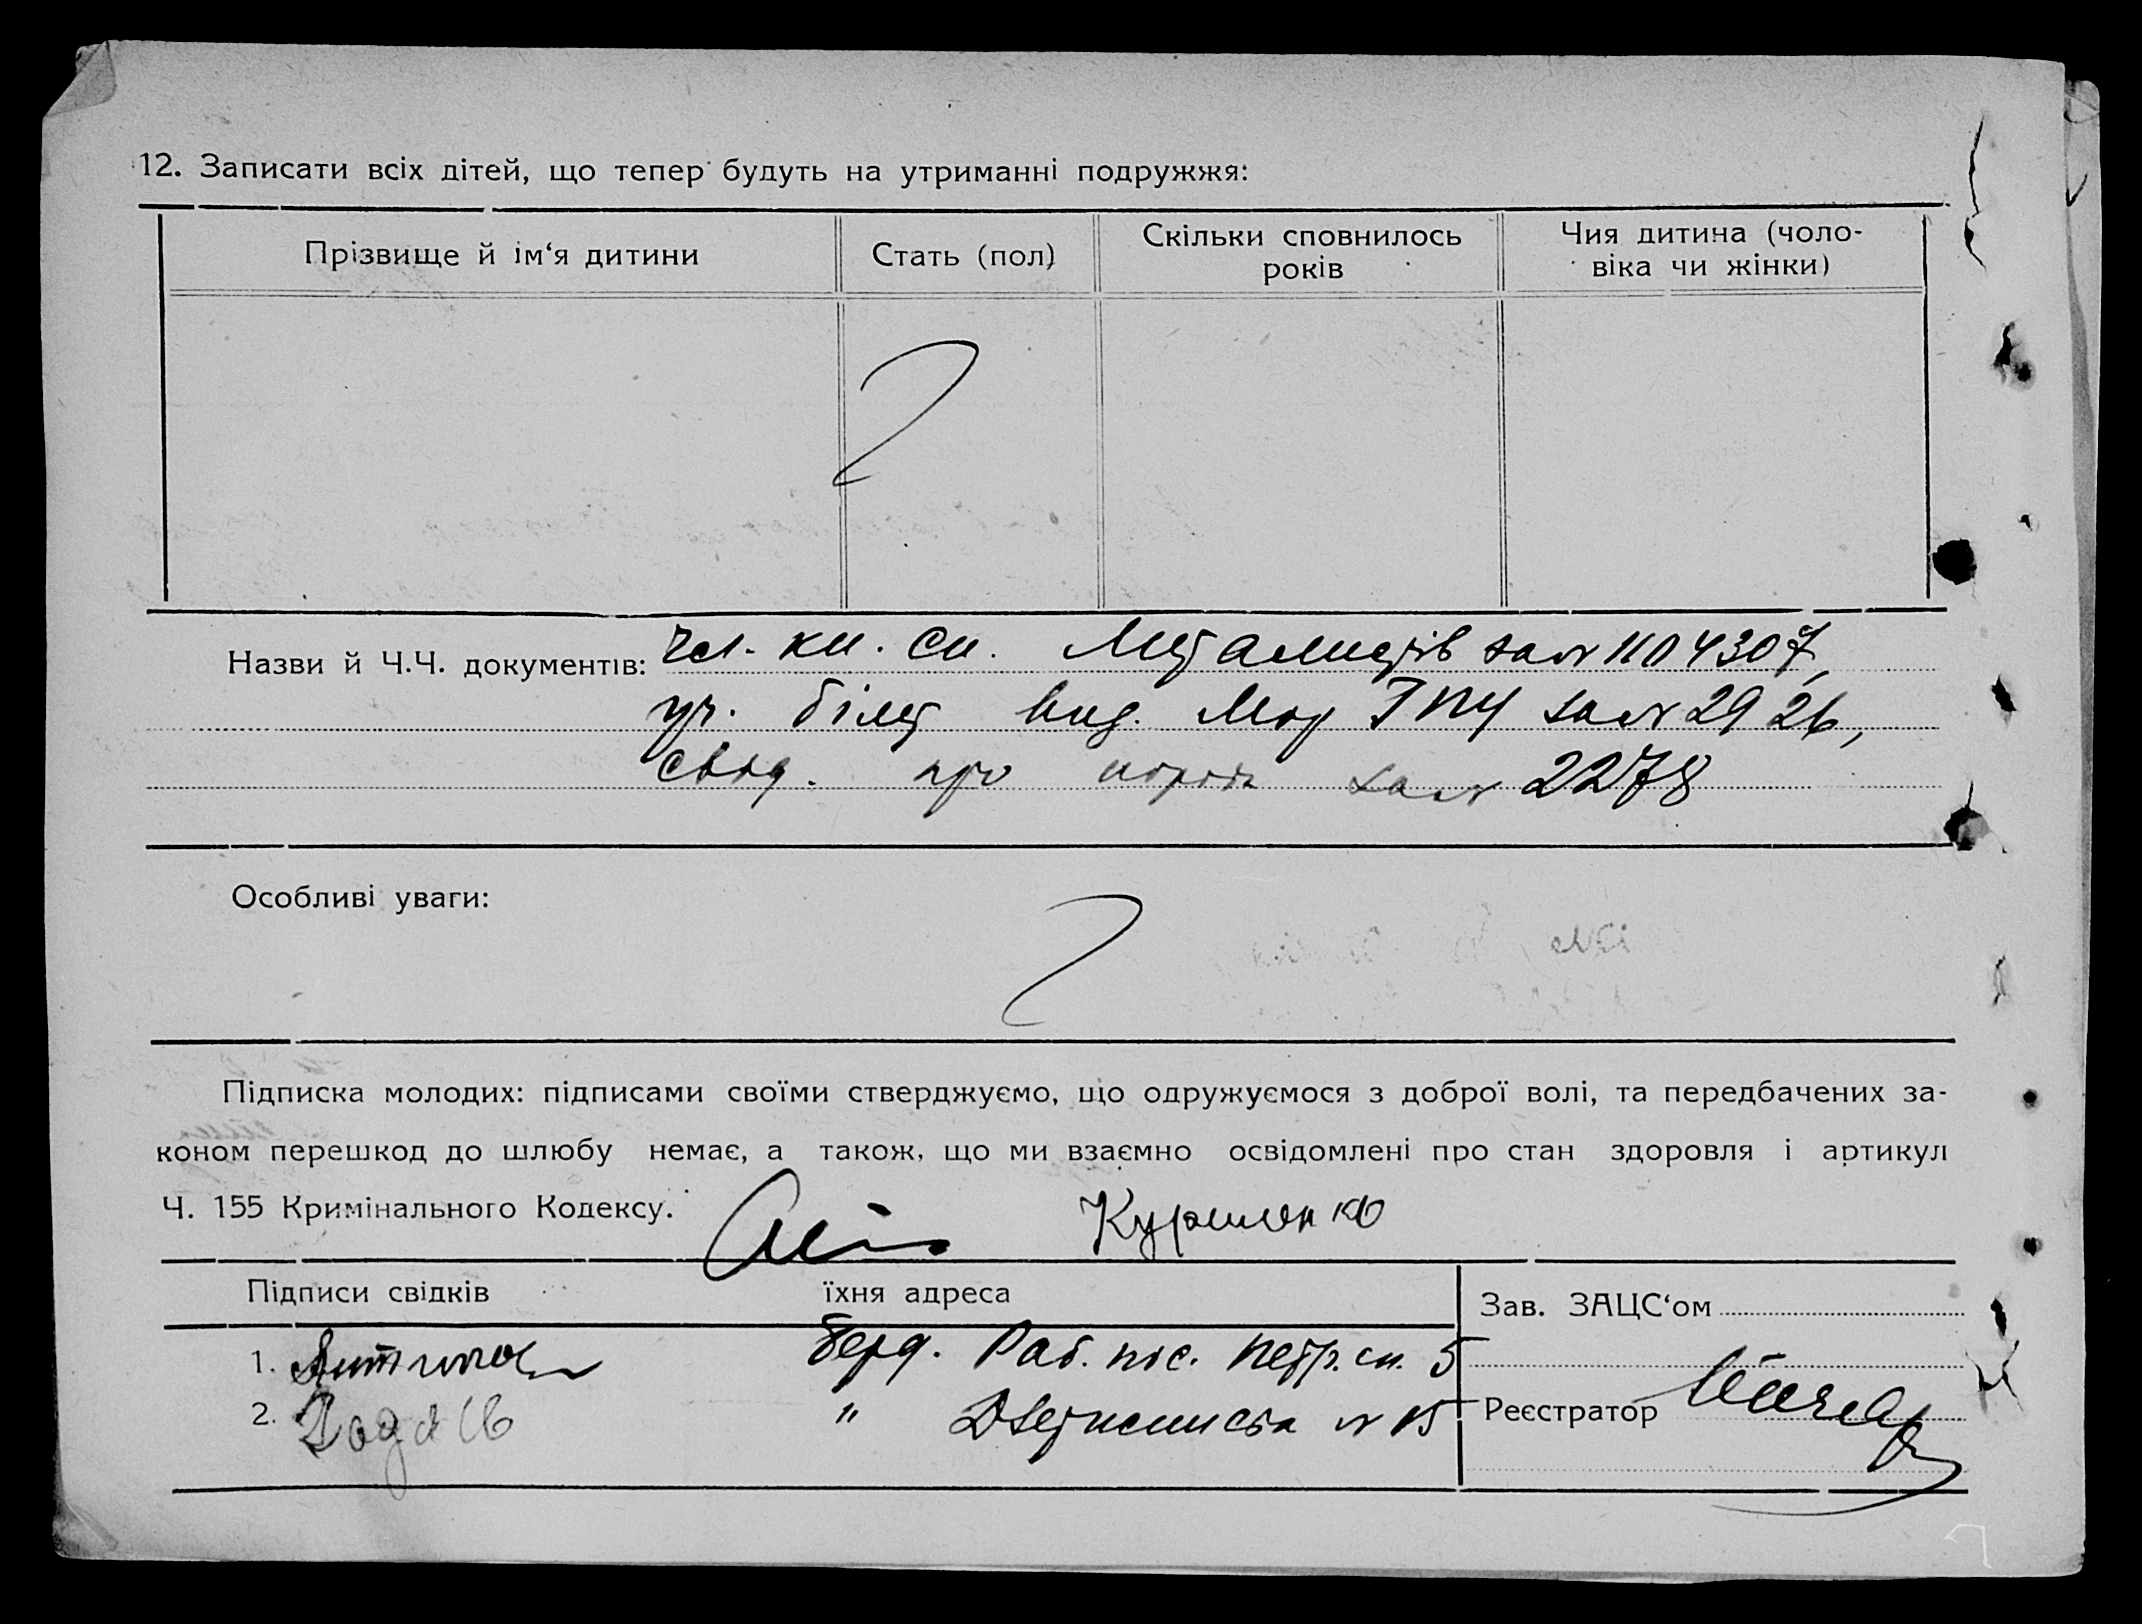 12. Записати всіх дітей, що тепер будуть на утриманні подружжя:
Прізвище й ім‘я дитини
Стать (пол)
Скільки сповнилось
років
Чия дитина (чоло-
віка чи жінки)
Назви й Ч.Ч. документів: чл. кн. сп. Металистів за № 1104307,
білет вид. ГПУ за № 2926,
свід. про за № 2278
Особливі уваги:
Підписка молодих: підписами своїми стверджуємо, що одружуємося з доброї волі, та передбачених за-
коном перешкод до шлюбу немає, а також, що ми взаємно освідомлені про стан здоровля і артикул
Ч. 155 Кримінального Кодексу.
Підписи свідків
їхня адреса
Зав. ЗАЦС‘ом
1. Берд. Раб. пос. Петр. сп. 5
2. " № 15
Реєстратор